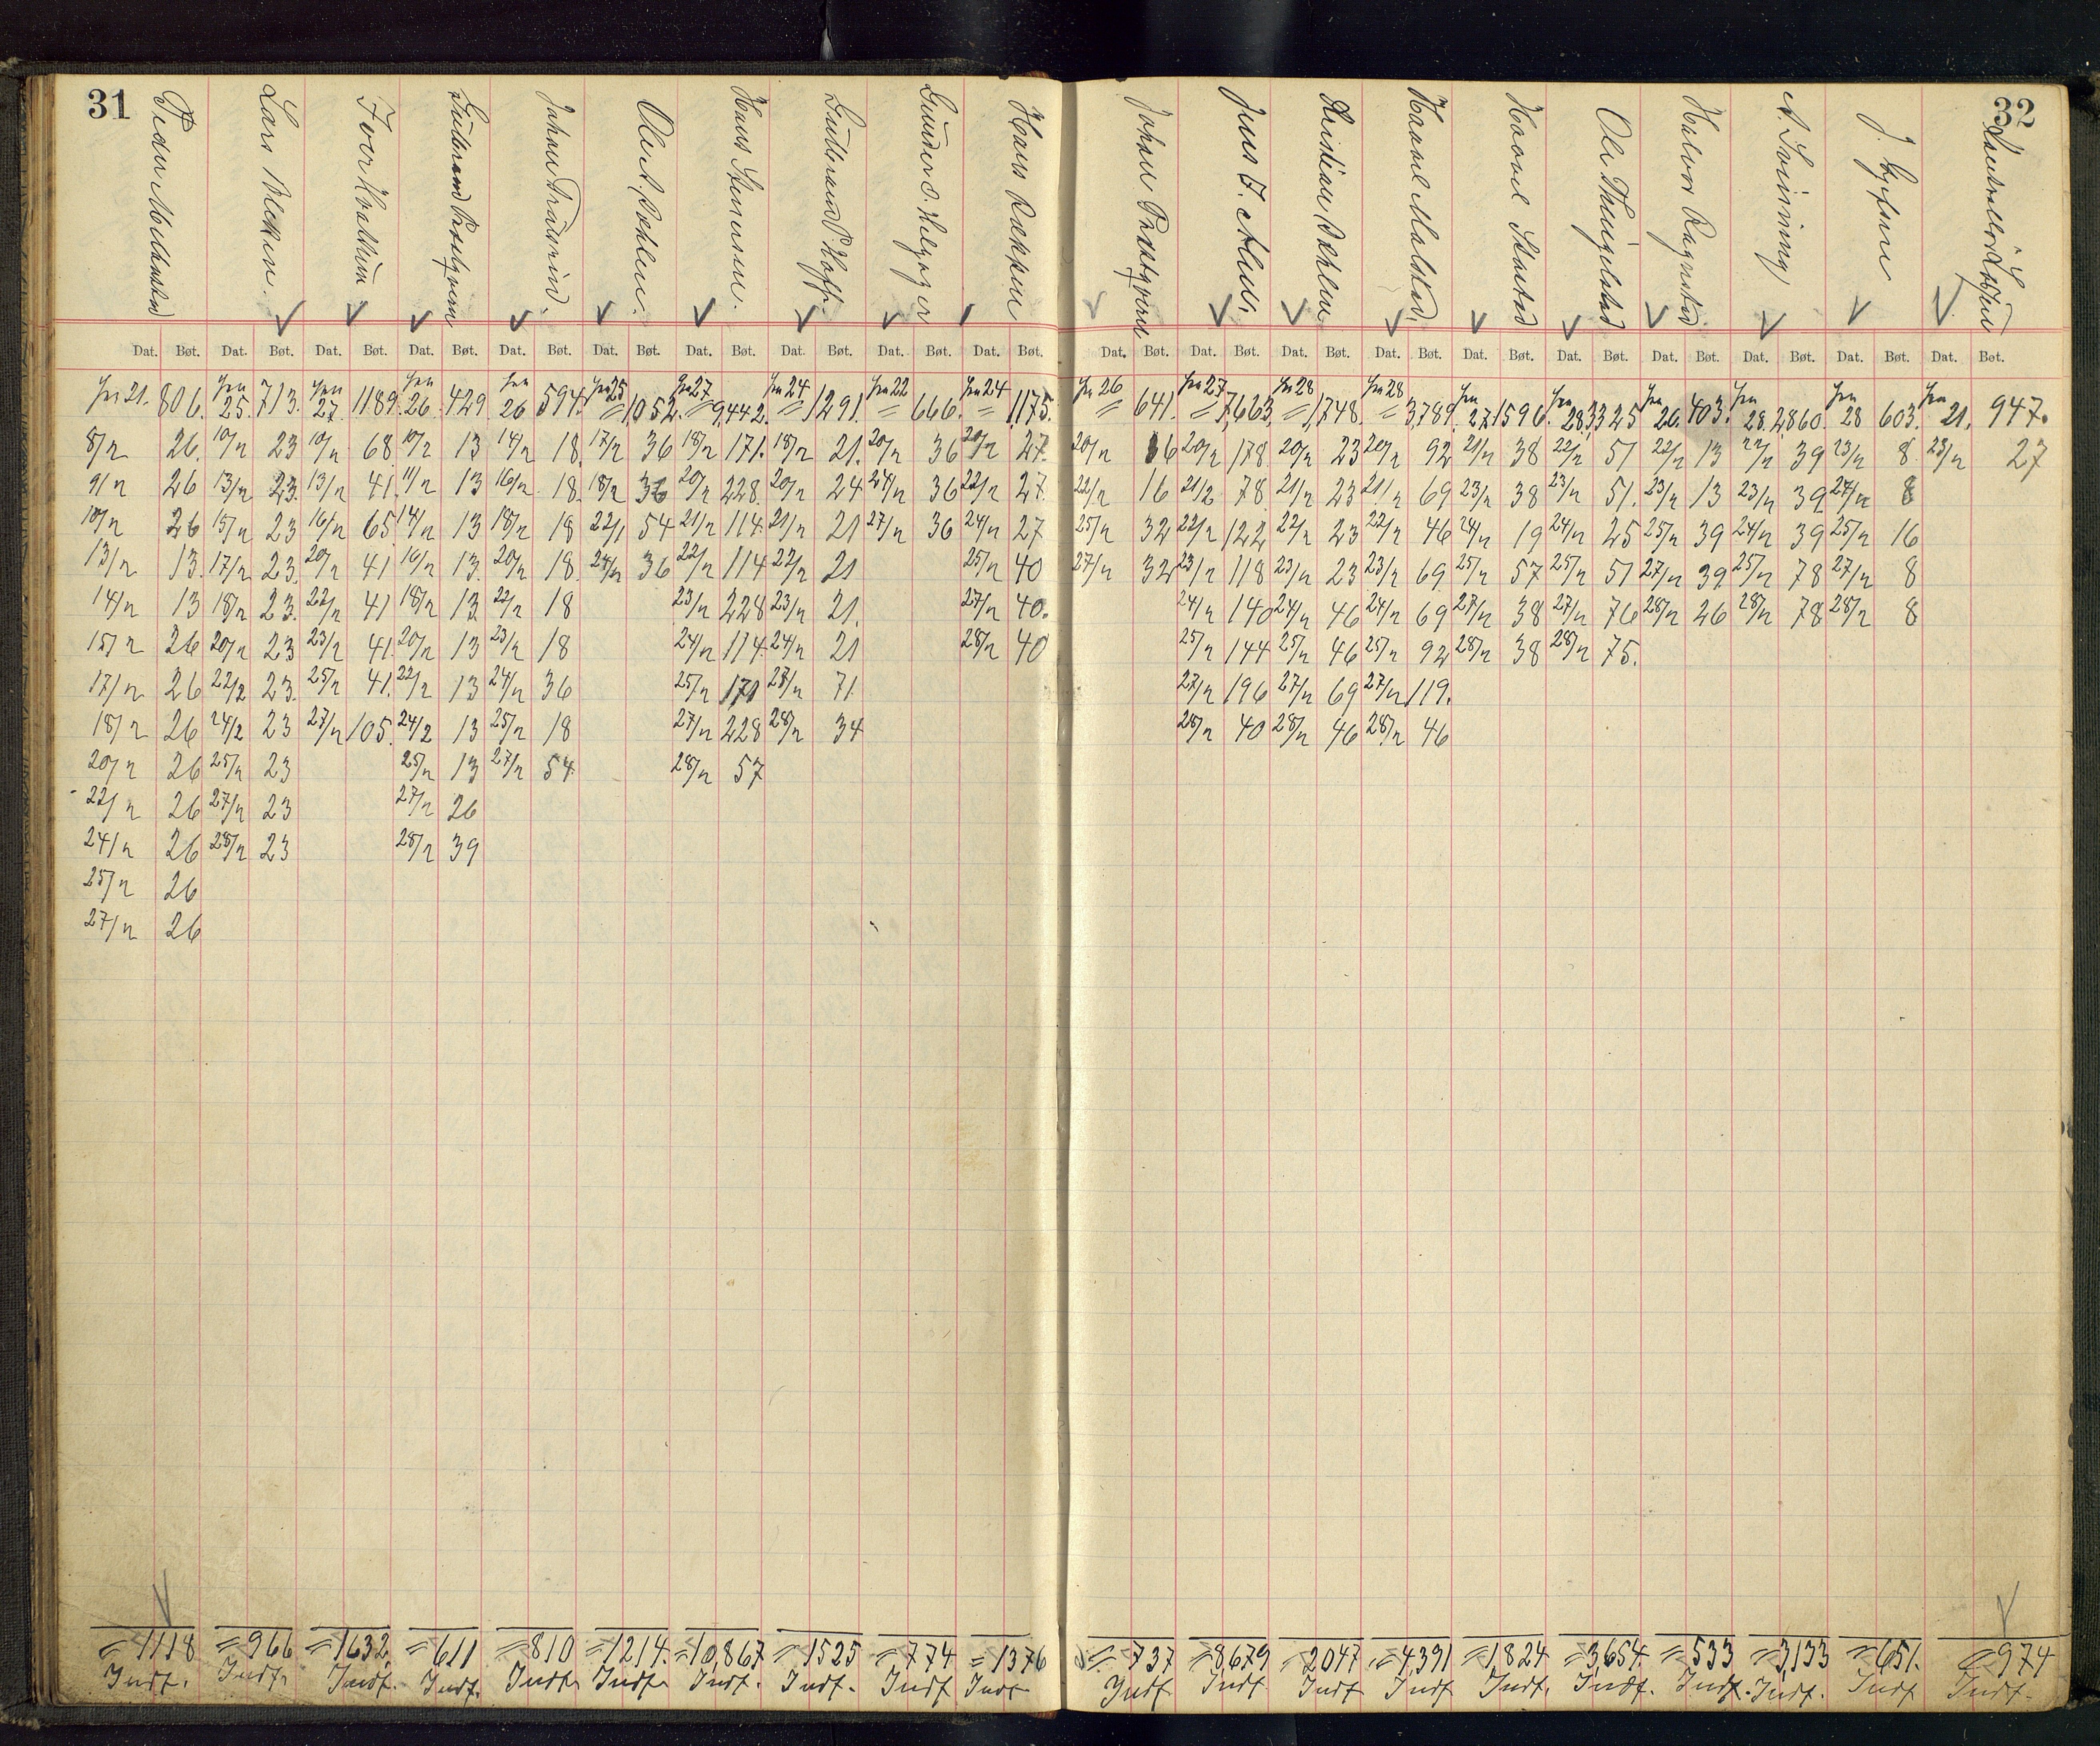 31
32
Lars Blekken.
Iver Kvalhiem
Johan Trådvind.
Ole A. Røhlen.
Hans Stensrum.
Gudbrand P. Hoff.
Gunder O. Helgager
Hans Røkken
Johan Præstgven
Jens J. Alm.
Kristian Røhlen
Haavel Malstad.
Haavel Skattad
Halvor Ragnstad
J. Gifsen
Dat. Bøt. Dat. Bøt. Dat. Bøt. Dat. Bøt. Dat. Bøt. Dat. Bøt. Dat. Bøt. Dat. Bøt. Dat. Bøt. Dat. Bøt. Dat. Bøt. Dat. Bøt. Dat. Bøt. Dat. Bøt. Dat. Bøt. Dat. Bøt. Dat. Bøt. Dat. Bøt. Dat. Bøt. Dat. Bøt.
21. 806. 25. 713. 27. 1189. 26. 429 26 594. 25 = 1052. 27 = 9,442. 24 = 1291. 22 = 666. 24 = 1175. 26 = 641. 27 = 7,663, 28 = 1,748. 28 = 3,789. 27. 1596. 28. 3325 26. 403. 28. 2,860. 28 603. 21. 947.
8/2 26. 10/2 23 10/2 68 10/2 13 14/2 18. 17/2 36 18/2 171. 18/2 21. 20/2 36 20/2 27. 20/2 16 20/2 178 20/2 23 20/2 92 21/2 38 22/2 51 22/2 13 22/2 39 23/2 8 23/2 27
9/2 26 13/2 23. 13/2 41. 11/2 13 16/2 18. 18/2 36 20/2 228. 20/2 24 24/2 36 22/2 27. 22/2 16 21/2 78 21/2 23 21/2 69 23/2 38 23/2 51. 23/2 13 23/2 39 24/2 8
10/2 26 15/2 23 16/2 65. 14/2 13 18/2 18 22/1 54 21/2 114. 21/2 21 27/2 36 24/2 27 25/2 32 22/2 122 22/2 23 22/2 46 24/2 19 24/2 25 25/2 39 24/2 39 25/2 16
13/2 13. 17/2 23. 20/2 41 16/2 13. 20/2 18. 24/2 36 22/2 114 22/2 21 25/2 40 27/2 32 23/2 118 23/2 23 23/2 69. 25/2 57 25/2 51 27/2 39. 25/2 78 27/2 8
14/2 13 18/2 23. 22/2 41 18/2 13 22/2 18 23/2 228 23/2 21. 27/2 40. 24/2 140 24/2 46 24/2 69 27/2 38 27/2 76 28/2 26 28/2 78 28/2 8
15/2 26 20/2 23 23/2 41. 20/2 13 23/2 18 24/2 114. 24/2 21 28/2 40 25/2 144 25/2 46 25/2 92 28/2 38 28/2 75.
17/2 26 22/2 23. 25/2 41. 22/2 13 24/2 36 25/2 171 27/2 71. 27/2 196 27/2 69 27/2 119.
18/2 26 24/2 23 27/2 105. 24/2 13 25/2 18 27/2 228 28/2 34 28/2 40 28/2 46 28/2 46
20/2 26 25/2 23 25/2 13 27/2 54 28/2 57
22/2 26 27/2 23 27/2 26
24/2 26 28/2 23 28/2 39
25/2 26
27/2 26
= 1118 = 966 = 1632. = 611 = 810 = 1214. = 10,867 = 1525 = 774 = 1376 = 737 = 8679 2047 = 4,391 = 1,824 = 3,654. = 533 = 3,133 = 651. = 974
Indf. Indf. Indf. Indf. Indf. Indf. Indf. Indf. Indf Indf Indf Indf Indf Indf Indf. Indf. Indf. Indf. Indf Indf.